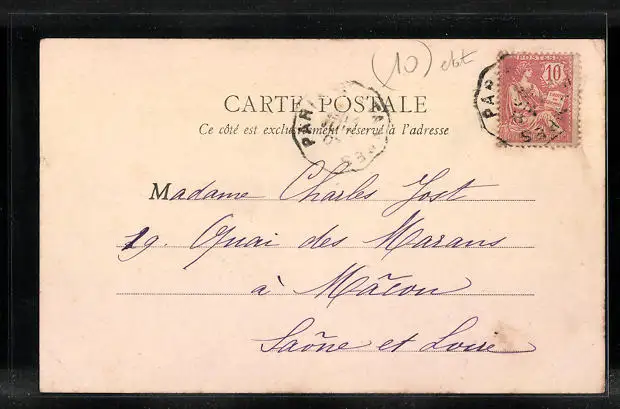 (10) ebt
POSTES
10
CARTE POSTALE
Ce côté est exclusivement réservé à l'adresse
Madame Charles Jost
19. Quai des Marans
à Mâcon
Saône et Loire